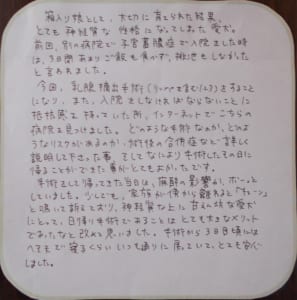 箱入り娘として、大切に育てられた結果、
とても神経質な性格になってしまった愛犬。
前回、別の病院で子宮蓄膿症で入院した時
は、3日間あまりご飯も食べず、排泄もしなかった
と言われました。
今回、乳腺摘出手術
をすることに
なり、また、入院をしなければならないことに
抵抗感を持っていた所、インターネットでこちらの
病院を見つけました。どのような手術なのか、どのよ
うなリスクがあるのか、術後の合併症など詳しく
説明して下さった事、そしてなにより手術したその日に
帰ることができた事がとてもよかったです。
手術をして帰ってきた当日は、麻酔の影響か、ボーッと
していました。少しでも、家族が傍から離れると「クーン」
と鳴いて訴えており、神経質な上に甘えん坊な愛犬
にとって、日帰り手術であることはとても大きなメリット
であったなと改めて思いました。手術から3日目頃には
へそ天で寝るくらいいつも通りに戻っていて、とても安心
しました。